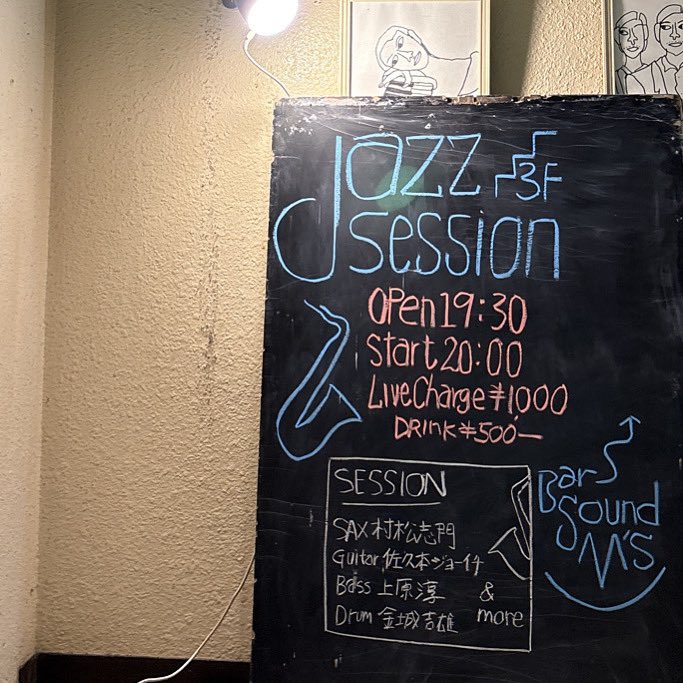 Jazz 3F
session
OPen 19:30
Start 20:00
Live Charge ¥1,000
DRINK ¥500—
SESSION
SAX 村松志門
Guitar 佐久本ジョーイチ
Bass 上原淳 &
Drum 金城吉雄 more
Bar
Sound
M'S